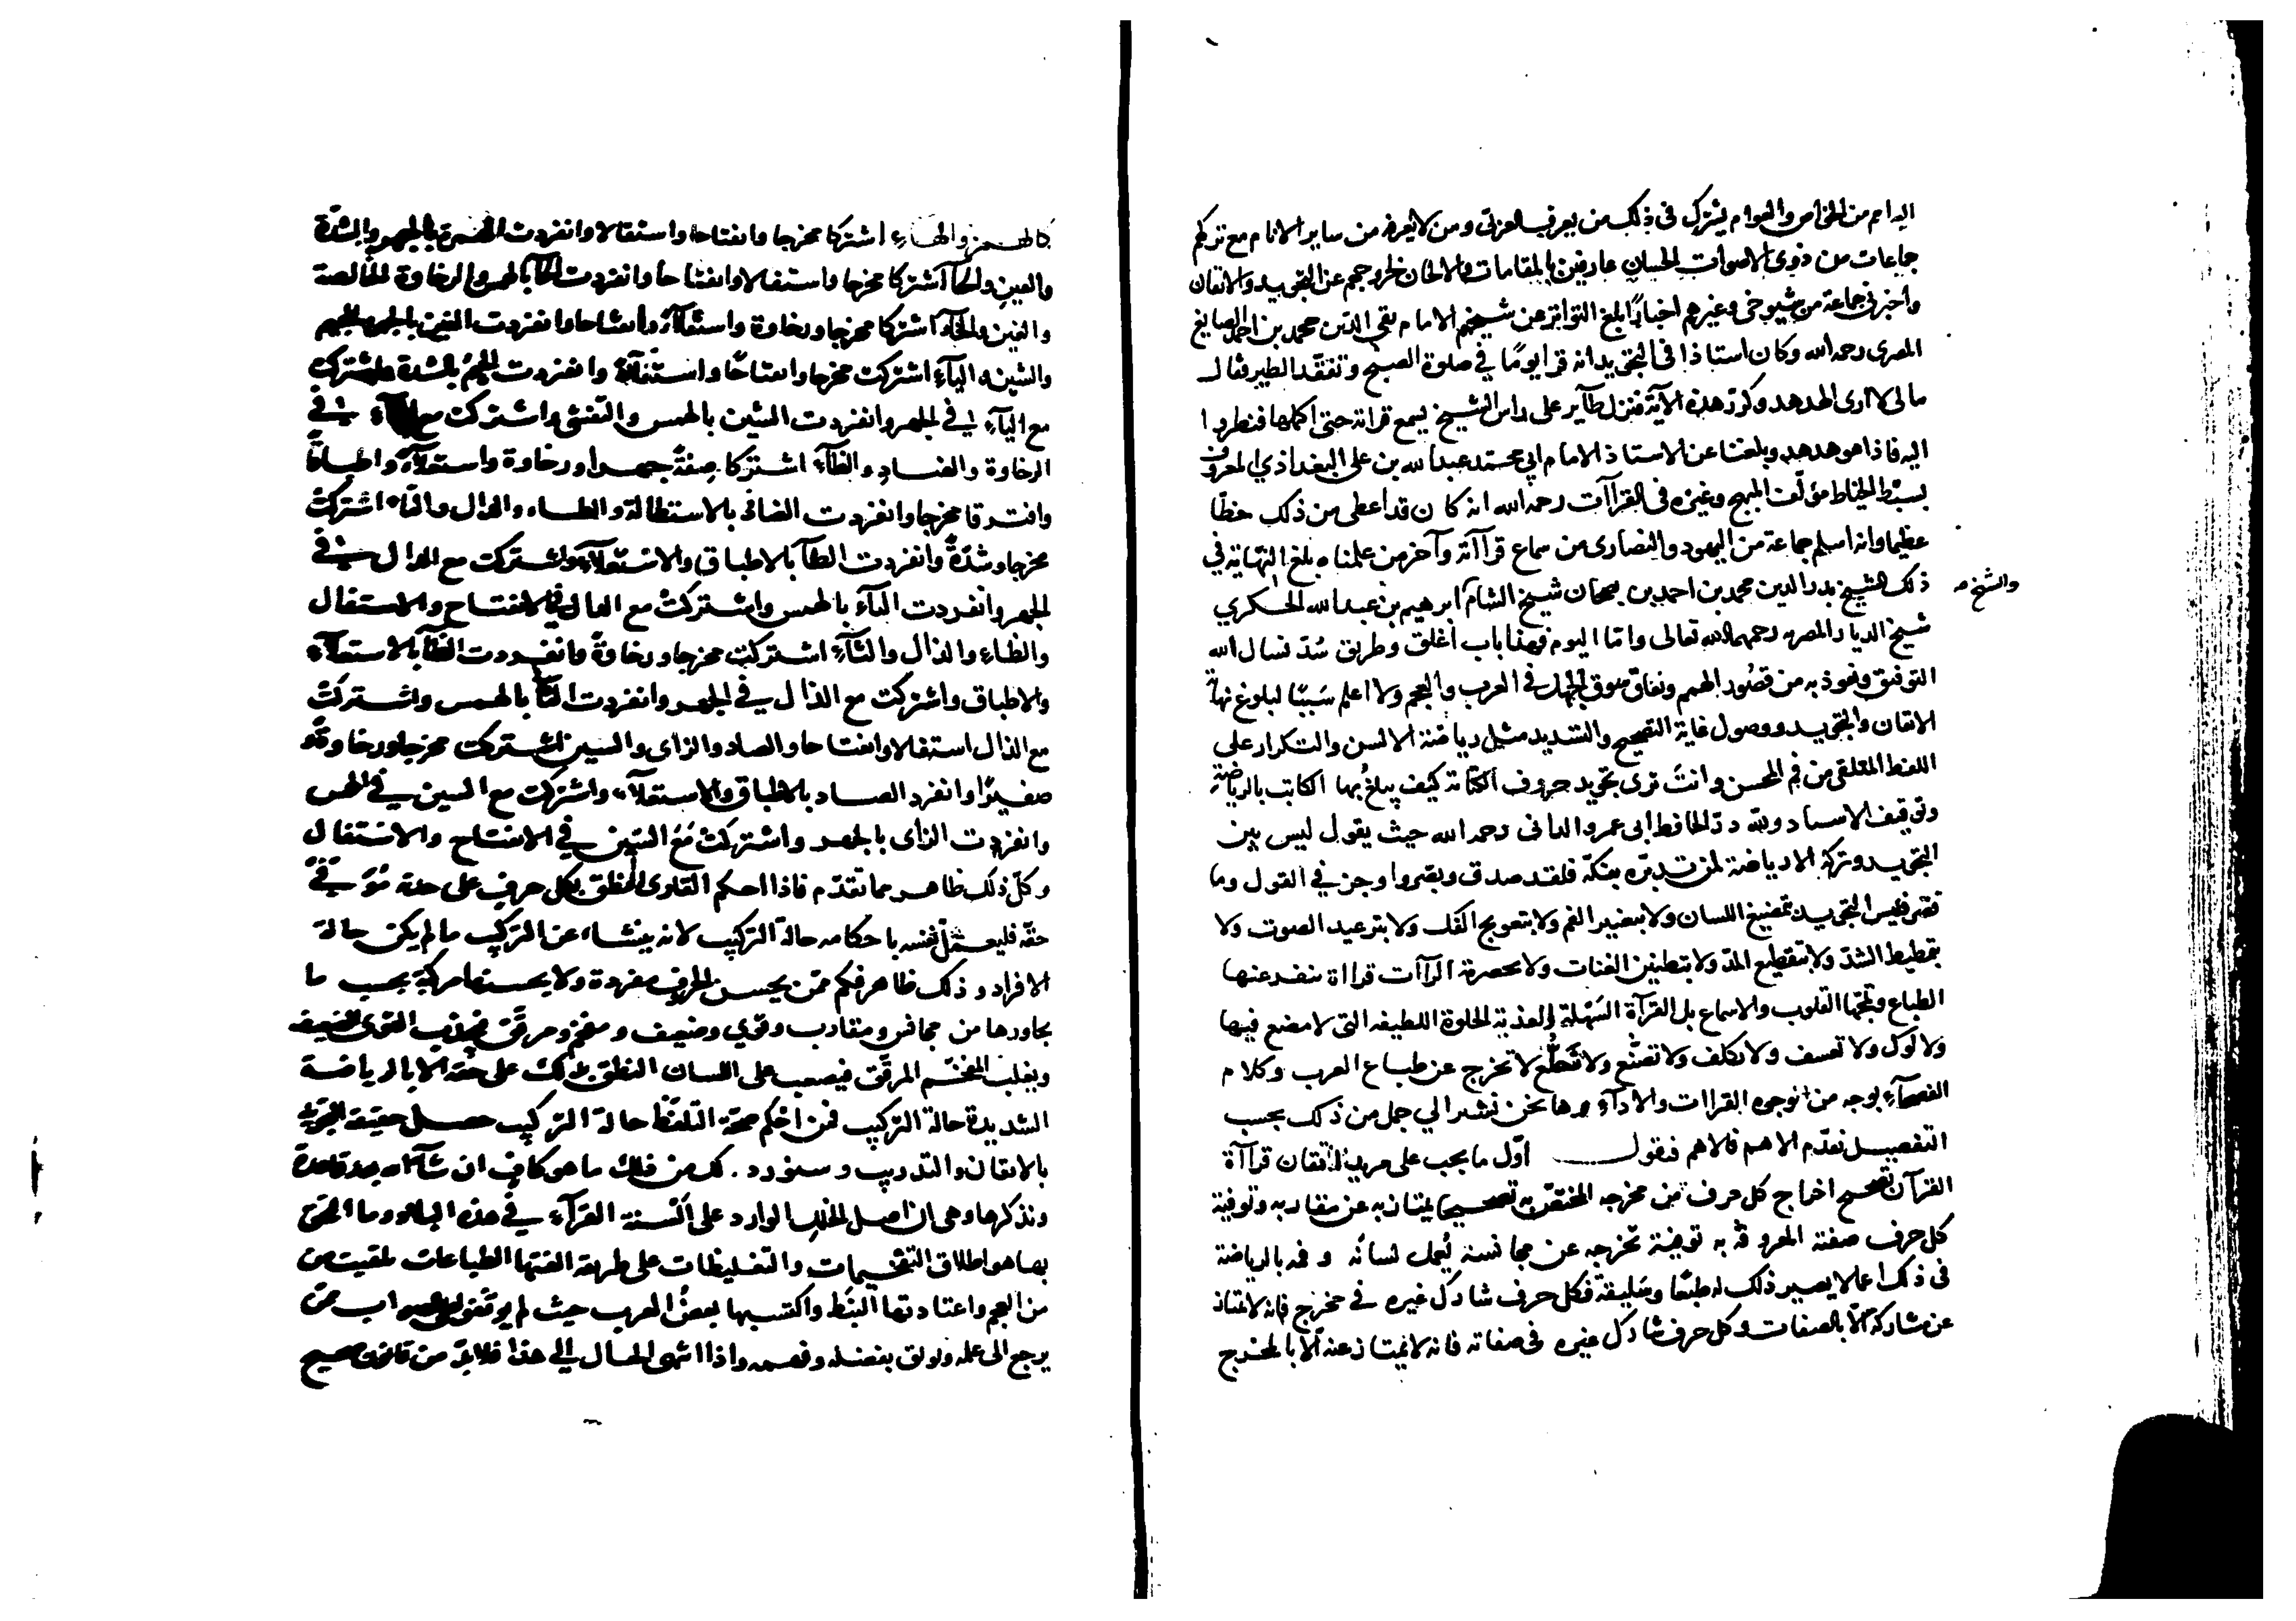 اليه امم من الخواص والعوام يشترك في ذلك من يعرف العربي ومن لا يعرفه من ساير الانام مع تركهم
جماعات من ذوى الاصوات الحسان عارفين بالمقامات والالحان لخروجهم عن التجويد والاتقان
واخبرني جماعة من شيوخى وغيرهم اخبارًا بلغ التواتر عن شيخهم الامام تقي الدين محمد بن احمد الصايغ
المصرى رحمه الله وكان استاذا فى التجويد انه قرا يومًا في صلوة الصبح وتفقد الطير فقال
مالى لا ارى الهدهد وكرر هذه الآية فنزل طآير على راس الشيخ ليسمع قراته حتى اكملها فنظروا
اليه فاذا هو هدهد وبلغنا عن الاستاذ الامام ابي محمد عبد الله بن على البغداذي المعروف
بسبط الخياط مؤلف المبهج وغيره فى القراآت رحمه الله انه كان قد اعطى من ذلك حظًا
عظيما وانه اسلم جماعة من اليهود والنصارى من سماع قرآاته وآخر من علمناه بلغ النهاية في
ذلك الشيخ بدر الدين محمد بن احمد بن بصحان شيخ الشام ابرهيم بن عبد الله الحكري
والشيخ صـ
شيخ الديار المصريه رحمهما الله تعالى واما اليوم فهذا باب اغلق وطريق سُدّ نسال الله
التوفيق ونعوذ به من قصُور الهمم ونفاق سوق الجهل في العرب والعجم ولا اعلم سَببًا لبلوغ نهاية
الاتقان والتجويد ووصول غاية التصحيح والتشديد مثل رياضة الالسن والتكرار على
اللفظ المتلقى من فم المحسن وانتَ ترى تجويد حروف الكتابة كيف يبلغُ بها الكاتب بالرياضة
وتوقيف الاستاد ولله درّ الحافظ ابى عمرو الدانى رحمه الله حيث يقول ليس بين
التجويد وتركه الا رياضة لمن تدبّره بفكّه فلقد صدق وبصّر واوجز في القول وما
قصّر فليس التجويد بتمضيغ اللسان ولا بتقعير الفم ولا بتعويج الفك ولا بترعيد الصوت ولا
بتمطيط الشد ولا بتقطيع المدّ ولا بتطنين الغنات ولا بحصرمة الرآات قرااة تنفر عنها
الطباع وتمجّها القلوب والاسماع بل القرآة السَهْلة العذبة الحلوة اللطيفه التى لا مضغ فيها
ولا لوك ولا تعسف ولا تكلف ولا تصنّع ولا تنَطُّع لا تخرج عن طباع العرب وكلام
الفصحآء بوجه من وجوه القراات والادآء وها نحن نشير الي جمل من ذلك بحسب
التفصيل نقدّم الاهم فالاهم فنقول اوّل ما يجب على مريد اتقان قرآاة
القرآن تصحيح اخراج كل حرف من مخرجه المختصّ به تصحيحا يمتاز به عن مقاربه وتوفية
كل حرف صفته المعروفة به توفيةً تخرجه عن مجانسه يُعمل لسانَه وفمه بالرياضة
فى ذلك اعمالا يصير ذلك له طبعًا وسَليقة فكل حرف شارك غيره في مخرج فانه لا يمتاز
عن مشاركه الّا بالصفات وكل حرف شارك غيره فى صفاته فانه لا يمتاز عنه الّا بالمخرج
كالهمز والهاء اشتركا مخرجا وانفتاحا واستفالا وانفردت الهمزة بالجهر والشدّة
والعين والحآ اشتركا مخرجا واستفالا وانفتاحا وانفردت الحآ بالهمس والرخاوة الخالصة
والغين والخآء اشتركا مخرجا ورخاوة واستعلآء وانفتاحا وانفردت الغين بالجهر والجيم
والشين والياء اشتركت مخرجا وانفتاحًا واستفالا وانفردت الجيمُ بالشدة واشتركت
مع اليآء في الجهر وانفردت الشين بالهمس والتفشي واشتركت مع اليآء في
الرخاوة والضاد والظآء اشتركا صِفةً جهرا ورخاوة واستعلآءً واطباقًا
وافترقا مخرجا وانفردت الضاد بالاستطالة والطاء والدال والتاء اشتركت
مخرجا وشدّةً وانفردت الطآ بالاطباق والاستعلآء واشتركت مع الدال في
الجهر وانفردت التآء بالهمس واشتركتْ مع الدال في الانفتاح والاستفال
والظاء والذال والثآء اشتركت مخرجا ورخاوةً وانفردت الظآ بالاستعلآء
والاطباق واشتركت مع الذال في الجهر وانفردت الثآ بالهمس واشتركتْ
مع الذال استفالا وانفتاحا والصاد والزاى والسين اشتركت مخرجا ورخاوةً و
صفيرًا وانفرد الصاد بالاطباق والاستعلآء واشتركت مع السين في الهمس
وانفردت الزاى بالجهر واشتركتْ مَعَ السّين في الانفتاح والاسْتفال
وكلّ ذلك ظاهر مما تقدّم فاذا احكم القارى النطق بكل حرف على حدته مُوَفّيً
حقّه فليعمل نفسه باحكامه حالة التركيب لانه ينشاء عن التركيب ما لم يكن حالة
الافراد وذلك ظاهر فكم ممّن يحسن الحروف مفردة ولا يحسنها مركّبة بحسب ما
يجاورها من مجانس ومقارب وقوي وضعيف ومفخّم ومرقّق فيجذب القوى الضعيف
ويغلب المفخّم المرقّق فيصعب على اللسان النطق بذلك على حقّه الّا بالرياضة
الشديدة حالة التركيب فمن احْكم صحّة التلفظ حالة التركيب حصل حقيقة التجويد
بالاتقان والتدريب وسنورد لك من ذلك ما هو كاف ان شآء الله بعد قاعدة
ونذكرها وهى ان اصل الخلل الوارد على السنة القرآء في هذه البلاد وما التحق
بها هو اطلاق التفخيمات والتغليظات على طريقة الفتها الطباعات تلقيت من
من العجم واعتادتها النبَط واكتسبها بعضُ العرب حيث لم يوقفوا على الصواب ممّن
يرجع الى علمه ويوثق بفضله وفهمه واذا انتهى الحال الي هذا فلا بدّ من قانون صحيح